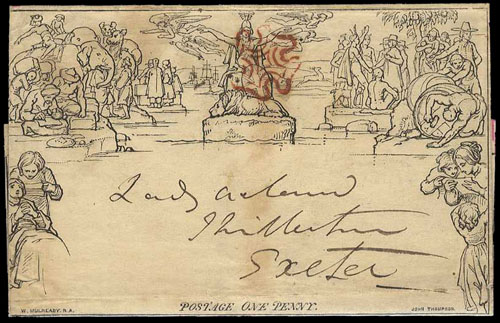 Lady Acland
Killerton
Exeter
W. MULREADY. R.A.
POSTAGE ONE PENNY.
JOHN THOMPSON.